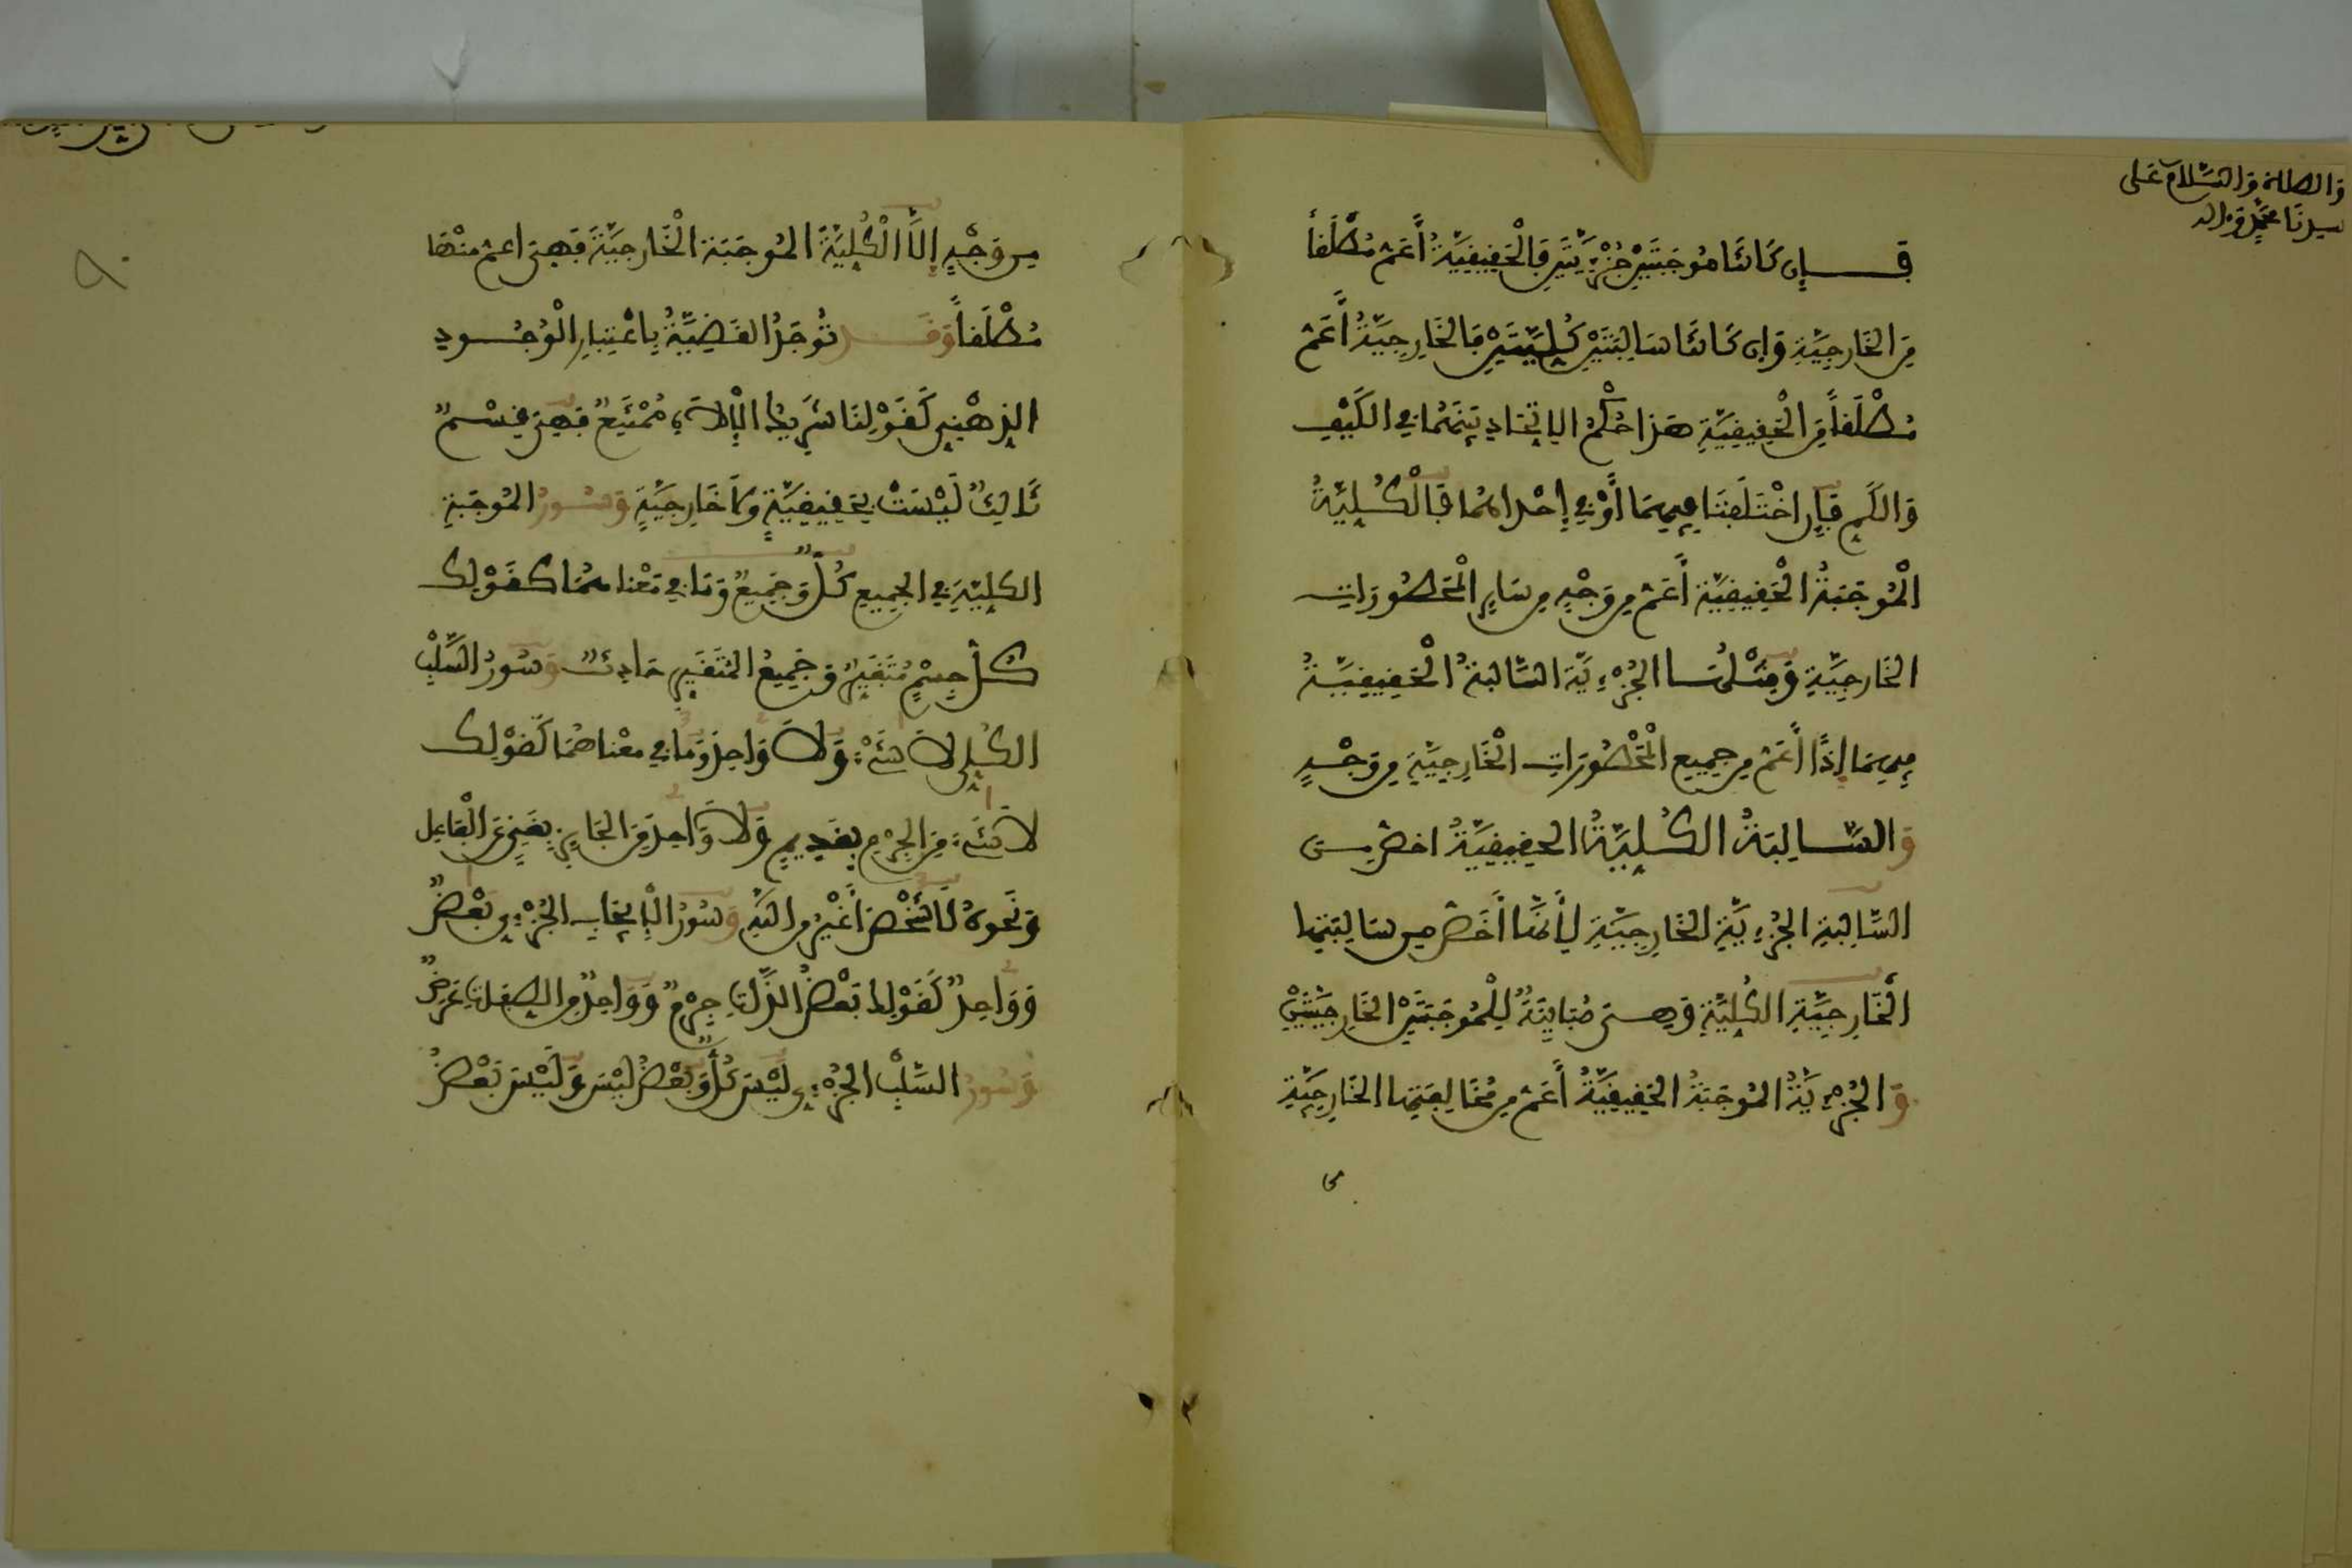 وَالصلاة وَالسَّلام عَلى
سيدنَا محمَّد وَاله
فَإِن كَانَتَا مُوجَبَتَيْنِ جُزْءِيَّتَيْنِ فَالْحَقِيقِيَّةُ أَعَمُّ مُطْلَقاً
مِنَ الخَارِجِيَّةِ وَإِن كَانَتَا سَالِبَتَيْنِ كُلِّيَّتَيْنِ فَالخَارِجِيَّةُ أَعَمُّ
مُطْلَقاً مِنَ الْحَقِيقِيَّةِ هَذَا حُكْمُ الاِتِّحَادِ بَيْنَهُمَا فِي الكَيْفِ
وَالكَمِّ فَإِنِ اخْتَلَفَتَا فِيهِمَا أَوْ فِي إِحْدَاهُمَا فَالْكُلِّيَّةُ
الْمُوجَبَةُ الْحَقِيقِيَّة أَعَمُّ مِن وَجْهٍ مِن سَايِرِ الْمَحْصُورَاتِ
الخَارِجِيَّةِ وَمِثْلُهَا الجُزْءِيَّة السَّالبَةُ الْحَقِيقِيَّةُ
فِيهِمَا إِذًا أَعَمُّ مِن جمِيعِ الْمَحْصُورَاتِ الْخَارِجِيَّةِ مِن وَجْهٍ
وَالسَّالِبَةُ الكُلِّيَّةُ الحقِيقِيَّةُ اخصّ مِنَ
السَّالِبَةِ الجُزْءِيَّةِ الخَارِجِيَّةِ لِأَنَّهَا أَخَصُّ مِن سَالِبَتِهَا
الْخَارِجِيَّةِ الكُلِّيَّةِ وَهِيَ مُبَايِنَةٌ لِلْمُوجَبَتَيْنِ الخَارِجِيَّتَيْنِ
وَالجُزْءِيَّةُ المُوجَبَةُ الحَقِيقِيَّةُ أَعَمُّ مِن مُخَالِفَتِهَا الخَارِجِيَّةِ
مِن وَجْهٍ إِلاَّ الْكُلِّيَّةَ المُوجَبَة الْخَارِجيَّةَ فَهِيَ اعمّ مِنْهَا
مُطْلَقاً وَقَد تُوجَدُ القَضِيَّةُ بِاعْتِبَارِ الْوُجُودِ
الذِهْنِي كَقَوْلِنَا شَرِيكُ الإِلاَهِ مُمْتَنِعٌ فَهِيَ قِسْمٌ
ثَالِثٌ لَيْسَتْ بِحَقِيقِيَّةٍ وَلاَ خَارِجِيَّةٍ وَسُورُ المُوجَبَةِ
الكلِيَّةِ فِي الجمِيعِ كُلٌّ وَجَمِيعٌ وَمَا فِي مَعْنَاهُمَا كقَوْلِكَ
كُلُّ جِسْمٍ مُتَغَيِّرٌ وَجَمِيعُ المُتَغَيِّرِ حَادِثٌ وَسُورُ السَّلْبِ
الكُلِّي لاَ شَيْءَ وَلاَ وَاحِدَ وَمَا فِي معْنَاهُمَا كَقَوْلِكَ
لاَ شَيْءَ مِنَ الجِرْمِ بِقَدِيمٍ وَلاَ وَاحِدَ مِنَ الجَايِزِ بِغَنِيٍّ عَنِ الْفَاعِلِ
وَنَحوهُ لاَ شَخْصَ أَغْيَرُ مِنَ اللَّهِ وَسُورُ الْإِيجَابِ الجُزْءِي بَعْضٌ
وَوَاحِدٌ كَقَوْلِكَ بَعْضُ الذَّاتِ جِرْمٌ وَوَاحِدٌ مِنَ الصِّفَاتِ عَرَضٌ
وَسُورُ السَّلْبِ الجُزْءِي لَيْسَ كُلُّ وَبَعْضُ لَيْسَ وَلَيْسَ بَعْضُ